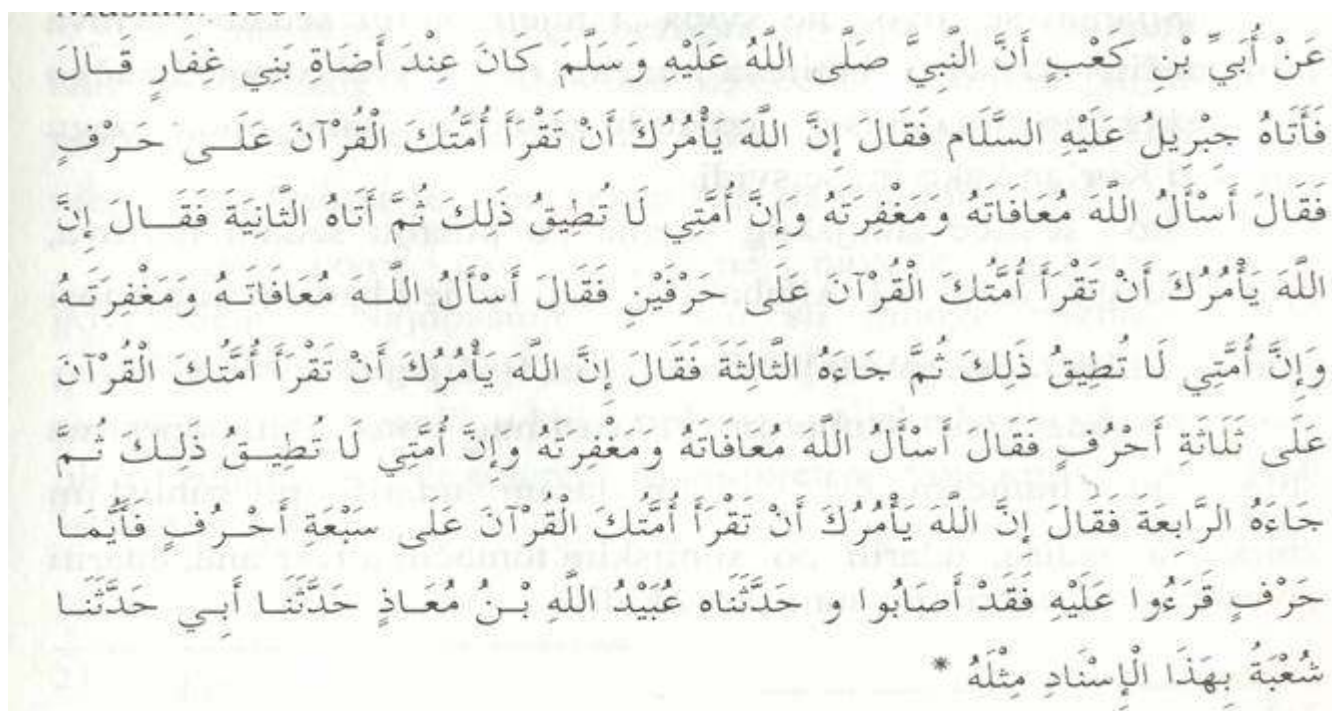 عَنْ أُبَيِّ بْنِ كَعْبٍ أَنَّ النَّبِيَّ صَلَّى اللَّهُ عَلَيْهِ وَسَلَّمَ كَانَ عِنْدَ أَضَاةِ بَنِي غِفَارٍ قَالَ
فَأَتَاهُ جِبْرِيلُ عَلَيْهِ السَّلَام فَقَالَ إِنَّ اللَّهَ يَأْمُرُكَ أَنْ تَقْرَأَ أُمَّتُكَ الْقُرْآنَ عَلَى حَرْفٍ
فَقَالَ أَسْأَلُ اللَّهَ مُعَافَاتَهُ وَمَغْفِرَتَهُ وَإِنَّ أُمَّتِي لَا تُطِيقُ ذَلِكَ ثُمَّ أَتَاهُ الثَّانِيَةَ فَقَالَ إِنَّ
اللَّهَ يَأْمُرُكَ أَنْ تَقْرَأَ أُمَّتُكَ الْقُرْآنَ عَلَى حَرْفَيْنِ فَقَالَ أَسْأَلُ اللَّهَ مُعَافَاتَهُ وَمَغْفِرَتَهُ
وَإِنَّ أُمَّتِي لَا تُطِيقُ ذَلِكَ ثُمَّ جَاءَهُ الثَّالِثَةَ فَقَالَ إِنَّ اللَّهَ يَأْمُرُكَ أَنْ تَقْرَأَ أُمَّتُكَ الْقُرْآنَ
عَلَى ثَلَاثَةِ أَحْرُفٍ فَقَالَ أَسْأَلُ اللَّهَ مُعَافَاتَهُ وَمَغْفِرَتَهُ وَإِنَّ أُمَّتِي لَا تُطِيقُ ذَلِكَ ثُمَّ
جَاءَهُ الرَّابِعَةَ فَقَالَ إِنَّ اللَّهَ يَأْمُرُكَ أَنْ تَقْرَأَ أُمَّتُكَ الْقُرْآنَ عَلَى سَبْعَةِ أَحْرُفٍ فَأَيُّمَا
حَرْفٍ قَرَءُوا عَلَيْهِ فَقَدْ أَصَابُوا و حَدَّثَنَاه عُبَيْدُ اللَّهِ بْنُ مُعَاذٍ حَدَّثَنَا أَبِي حَدَّثَنَا
شُعْبَةُ بِهَذَا الْإِسْنَادِ مِثْلَهُ *